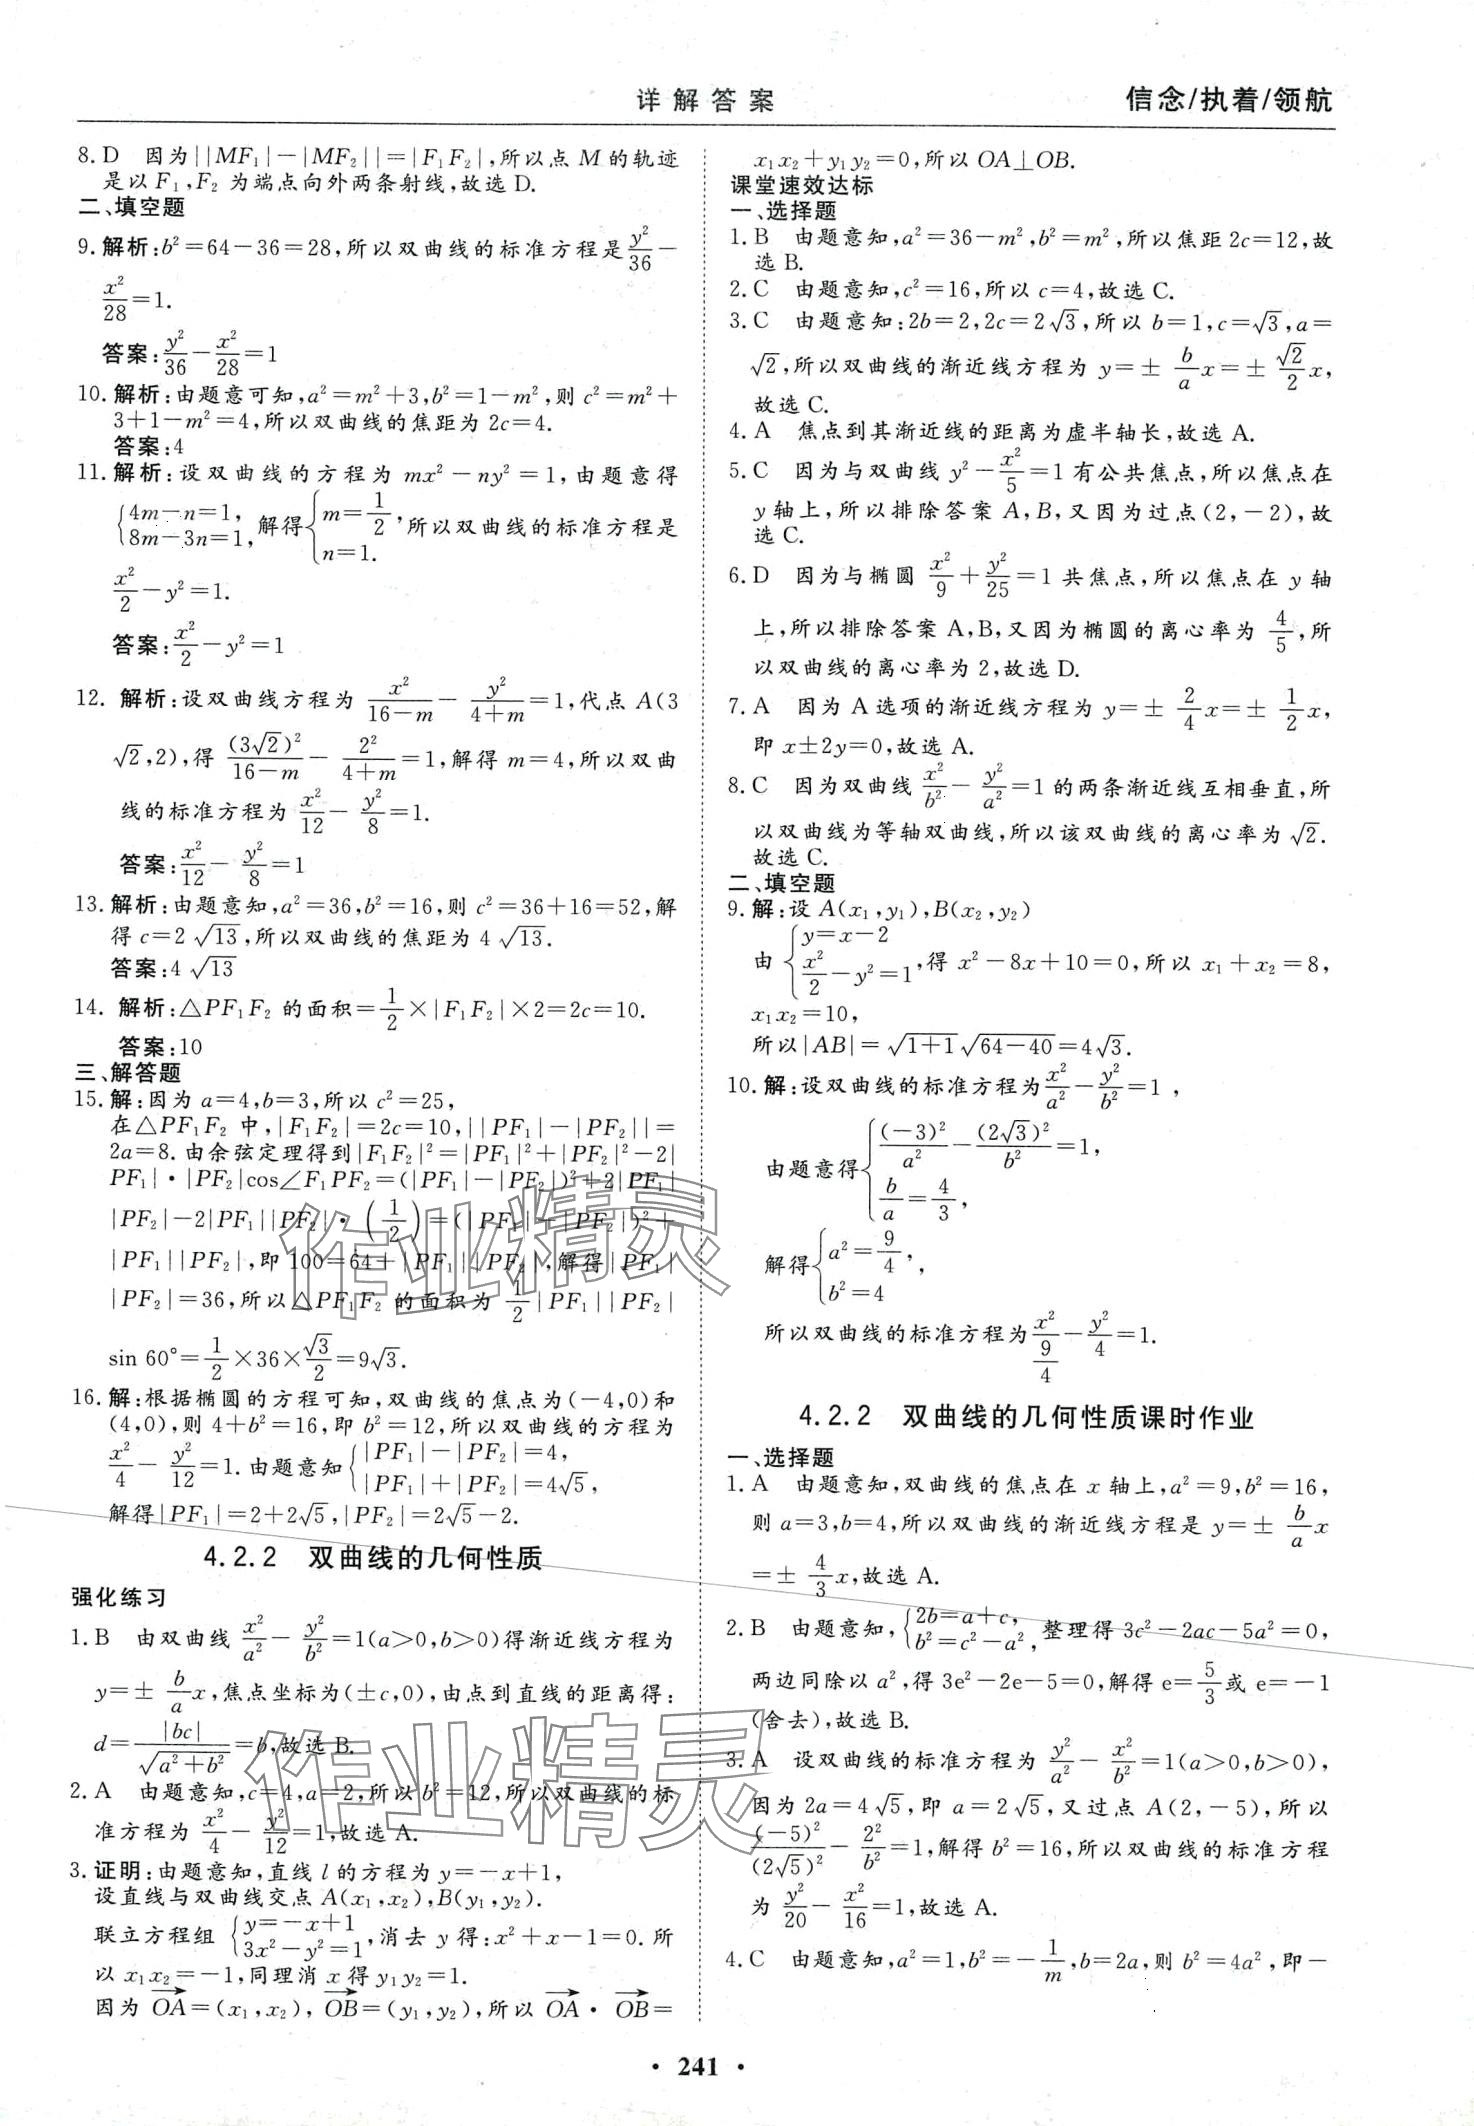 详解答案
信念/执着/领航
8.D 因为||MF₁|－|MF₂||＝|F₁F₂|,所以点 M 的轨迹
是以 F₁,F₂ 为端点向外两条射线,故选 D.
二、填空题
9.解析:b²＝64－36＝28,所以双曲线的标准方程是y²/36－
x²/28＝1.
答案:y²/36－x²/28＝1
10.解析:由题意可知,a²＝m²＋3,b²＝1－m²,则 c²＝m²＋
3＋1－m²＝4,所以双曲线的焦距为 2c＝4.
答案:4
11.解析:设双曲线的方程为 mx²－ny²＝1,由题意得
{4m－n＝1, 8m－3n＝1, 解得{m＝1/2, n＝1. 所以双曲线的标准方程是
x²/2－y²＝1.
答案:x²/2－y²＝1
12. 解析:设双曲线方程为 x²/(16－m)－y²/(4＋m)＝1,代点 A(3
√2,2),得 (3√2)²/(16－m)－2²/(4＋m)＝1,解得 m＝4,所以双曲
线的标准方程为 x²/12－y²/8＝1.
答案:x²/12－y²/8＝1
13.解析:由题意知,a²＝36,b²＝16,则 c²＝36＋16＝52,解
得 c＝2√13,所以双曲线的焦距为 4√13.
答案:4√13
14. 解析:△PF₁F₂ 的面积＝1/2×|F₁F₂|×2＝2c＝10.
答案:10
三、解答题
15.解:因为 a＝4,b＝3,所以 c²＝25,
在△PF₁F₂ 中,|F₁F₂|＝2c＝10,||PF₁|－|PF₂||＝
2a＝8. 由余弦定理得到|F₁F₂|²＝|PF₁|²＋|PF₂|²－2|
PF₁|·|PF₂|cos∠F₁PF₂＝(|PF₁|－|PF₂|)²＋2|PF₁|
|PF₂|－2|PF₁||PF₂|·(1/2)＝(|PF₁|－|PF₂|)²＋
|PF₁||PF₂|,即 100＝64＋|PF₁||PF₂|,解得|PF₁|
|PF₂|＝36,所以△PF₁F₂ 的面积为 1/2|PF₁||PF₂|
sin 60°＝1/2×36×√3/2＝9√3.
16.解:根据椭圆的方程可知,双曲线的焦点为(－4,0)和
(4,0),则 4＋b²＝16,即 b²＝12,所以双曲线的方程为
x²/4－y²/12＝1. 由题意知{|PF₁|－|PF₂|＝4, |PF₁|＋|PF₂|＝4√5,
解得|PF₁|＝2＋2√5,|PF₂|＝2√5－2.
4.2.2 双曲线的几何性质
强化练习
1.B 由双曲线 x²/a²－y²/b²＝1(a＞0,b＞0)得渐近线方程为
y＝± b/a x,焦点坐标为(±c,0),由点到直线的距离得:
d＝|bc|/√(a²＋b²)＝b,故选 B.
2.A 由题意知,c＝4,a＝2,所以 b²＝12,所以双曲线的标
准方程为 x²/4－y²/12＝1,故选 A.
3.证明:由题意知,直线 l 的方程为 y＝－x＋1,
设直线与双曲线交点 A(x₁,x₂),B(y₁,y₂).
联立方程组 {y＝－x＋1 3x²－y²＝1, 消去 y 得:x²＋x－1＝0. 所
以 x₁x₂＝－1,同理消 x 得 y₁y₂＝1.
因为 OA→＝(x₁,x₂), OB→＝(y₁,y₂),所以 OA→·OB→＝
x₁x₂＋y₁y₂＝0,所以 OA⊥OB.
课堂速效达标
一、选择题
1.B 由题意知,a²＝36－m²,b²＝m²,所以焦距 2c＝12,故
选 B.
2.C 由题意知,c²＝16,所以 c＝4,故选 C.
3.C 由题意知:2b＝2,2c＝2√3,所以 b＝1,c＝√3,a＝
√2,所以双曲线的渐近线方程为 y＝± b/a x＝± √2/2 x,
故选 C.
4.A 焦点到其渐近线的距离为虚半轴长,故选 A.
5.C 因为与双曲线 y²－x²/5＝1 有公共焦点,所以焦点在
y 轴上,所以排除答案 A,B,又因为过点(2,－2),故
选 C.
6.D 因为与椭圆 x²/9＋y²/25＝1 共焦点,所以焦点在 y 轴
上,所以排除答案 A,B,又因为椭圆的离心率为 4/5,所
以双曲线的离心率为 2,故选 D.
7.A 因为 A 选项的渐近线方程为 y＝± 2/4 x＝± 1/2 x,
即 x±2y＝0,故选 A.
8.C 因为双曲线 x²/b²－y²/a²＝1 的两条渐近线互相垂直,所
以双曲线为等轴双曲线,所以该双曲线的离心率为 √2.
故选 C.
二、填空题
9.解:设 A(x₁,y₁),B(x₂,y₂)
由 {y＝x－2 x²/2－y²＝1, 得 x²－8x＋10＝0,所以 x₁＋x₂＝8,
x₁x₂＝10,
所以|AB|＝√(1＋1)√(64－40)＝4√3.
10.解:设双曲线的标准方程为x²/a²－y²/b²＝1,
由题意得{(－3)²/a²－(2√3)²/b²＝1, b/a＝4/3,
解得{a²＝9/4, b²＝4
所以双曲线的标准方程为x²/(9/4)－y²/4＝1.
4.2.2 双曲线的几何性质课时作业
一、选择题
1.A 由题意知,双曲线的焦点在 x 轴上,a²＝9,b²＝16,
则 a＝3,b＝4,所以双曲线的渐近线方程是 y＝± b/a x
＝± 4/3 x,故选 A.
2.B 由题意知,{2b＝a＋c, b²＝c²－a², 整理得 3c²－2ac－5a²＝0,
两边同除以 a²,得 3e²－2e－5＝0,解得 e＝5/3或 e＝－1
(舍去),故选 B.
3.A 设双曲线的标准方程为 y²/a²－x²/b²＝1(a＞0,b＞0),
因为 2a＝4√5,即 a＝2√5,又过点 A(2,－5),所以
(－5)²/(2√5)²－2²/b²＝1,解得 b²＝16,所以双曲线的标准方程
为 y²/20－x²/16＝1,故选 A.
4.C 由题意知,a²＝1,b²＝－1/m,b＝2a,则 b²＝4a²,即－
· 241 ·
作业精灵
作业精灵